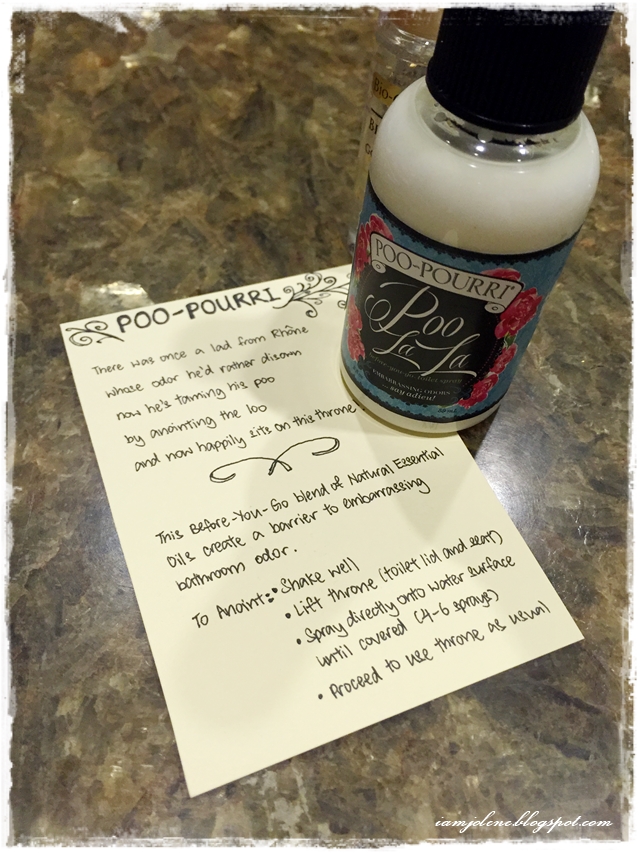 POO-POURRI
There was once a lad from Rhône
whose odor he'd rather disown
now he's taming his poo
by anointing the loo
and now happily sits on this throne
This Before-You-Go blend of Natural Essential
Oils create a barrier to embarrassing
bathroom odor.
To Anoint:
• Shake well
• Lift throne (toilet lid and seat)
• Spray directly onto water surface
until covered (4-6 sprays)
• Proceed to use throne as usual
POO-POURRI
Poo
La La
before you go toilet spray
EMBARRASSING ODORS
say adieu!
iamjolene.blogspot.com